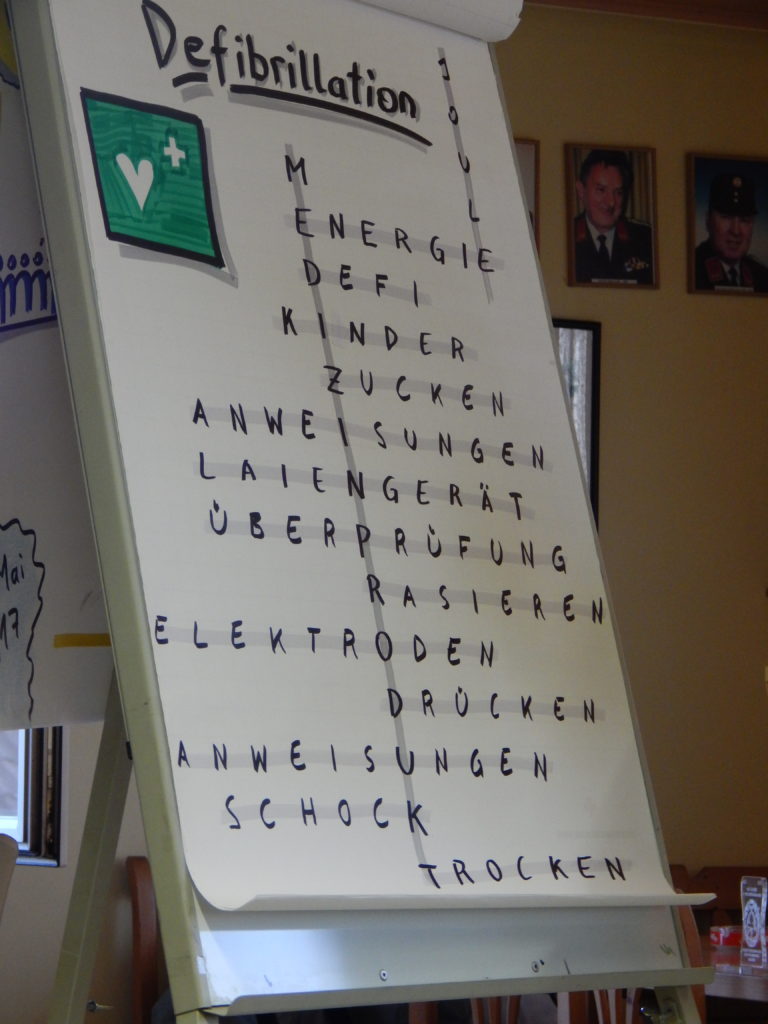 Defibrillation
J
O
U
L
M
ENERGIE
DEFI
KINDER
ZUCKEN
ANWEISUNGEN
LAIENGERÄT
ÜBERPRÜFUNG
RASIEREN
ELEKTRODEN
DRÜCKEN
ANWEISUNGEN
SCHOCK
TROCKEN
Mai
17